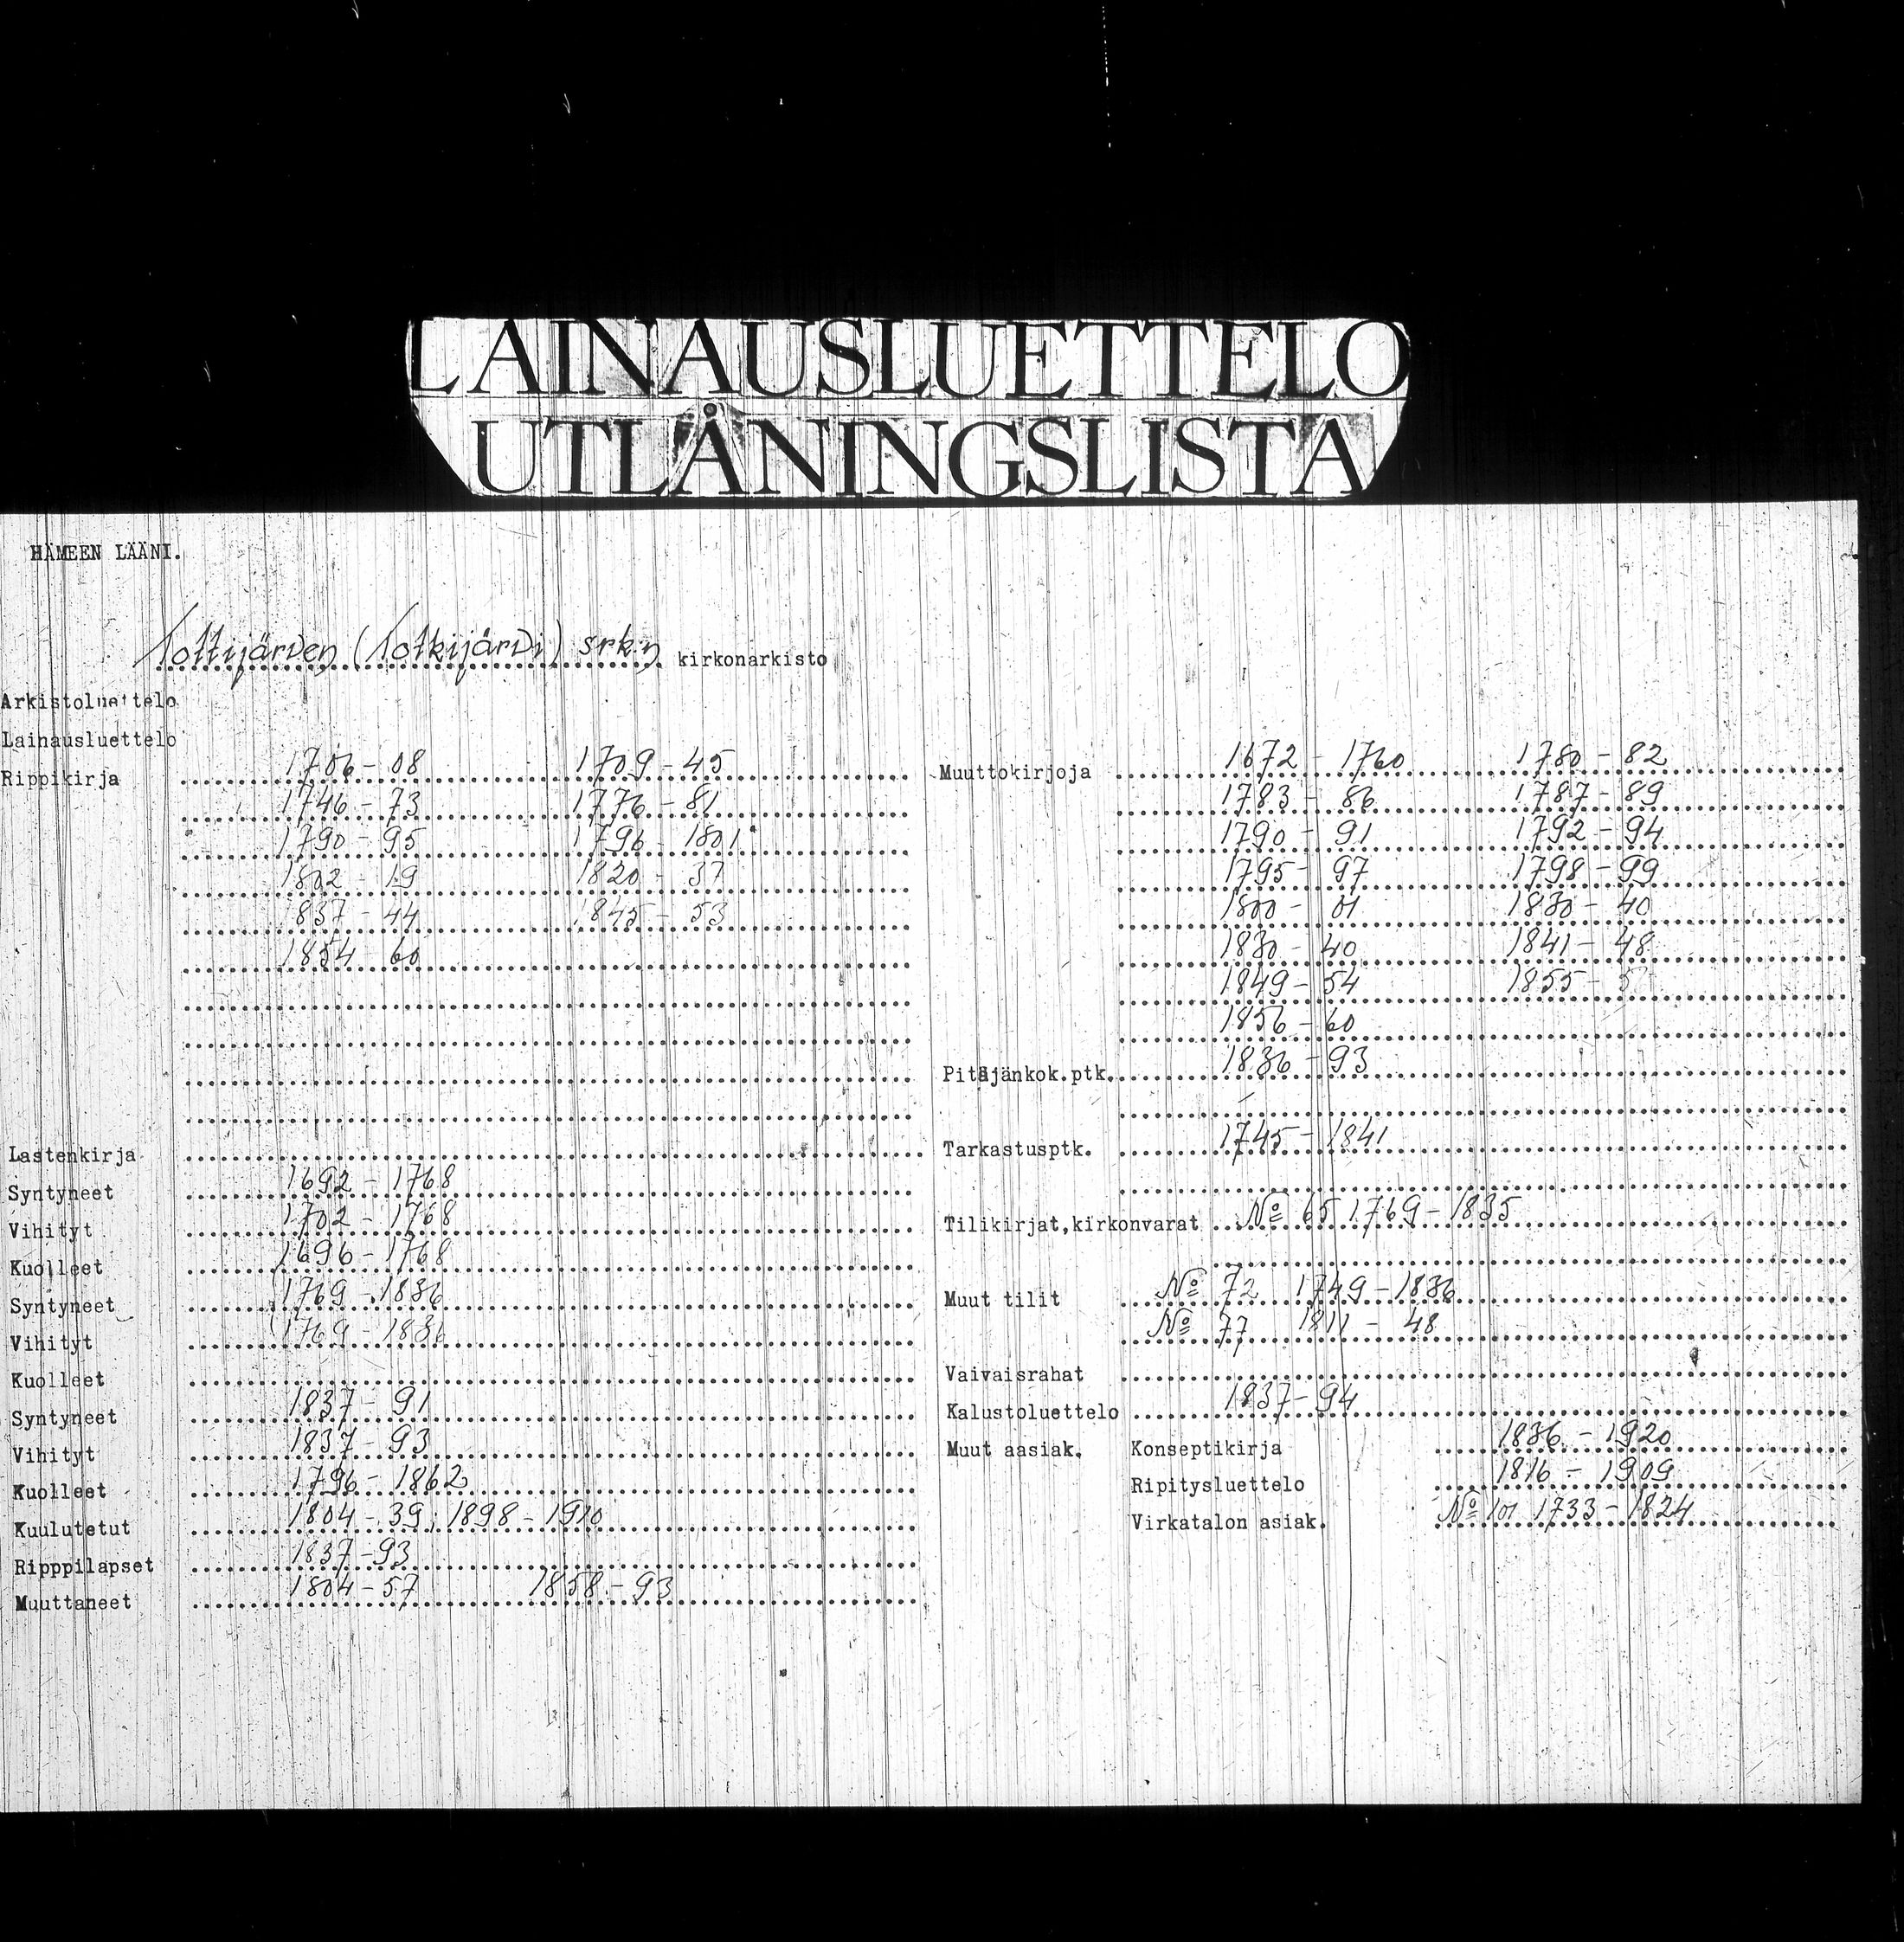 LAINAUSLUETTELO
UTLÅNINGSLISTA
HÄMEEN LÄÄNI.
Tottijärven (Totkijärvi) srk:n kirkonarkisto
Arkistoluettelo
Lainausluettelo
Rippikirja 1706-08 1709-45
1746-73 1776-81
1790-95 1796-1801
1802-19 1820-37
1837-44 1845-53
1854-60
Lastenkirja
Syntyneet 1692-1768
Vihityt 1702-1768
Kuolleet 1696-1768
Syntyneet 1769-1836
Vihityt 1769-1836
Kuolleet
Syntyneet 1837-91
Vihityt 1837-93
Kuolleet 1796-1862
Kuulutetut 1804-39; 1898-1910
Ripppilapset 1837-93
Muuttaneet 1804-57 1858-93
Muuttokirjoja 1672-1760 1780-82
1783-86 1787-89
1790-91 1792-94
1795-97 1798-99
1800-01 1830-40
1830-40 1841-48
1849-54 1855-
1856-60
Pitäjänkok.ptk. 1836-93
Tarkastusptk. 1745-1841
Tilikirjat,kirkonvarat No 65 1769-1835
Muut tilit No 72 1749-1836
No 77 1811-48
Vaivaisrahat
Kalustoluettelo 1837-94
Muut aasiak. Konseptikirja 1836-1920
Ripitysluettelo 1816-1909
Virkatalon asiak. No 101 1733-1824